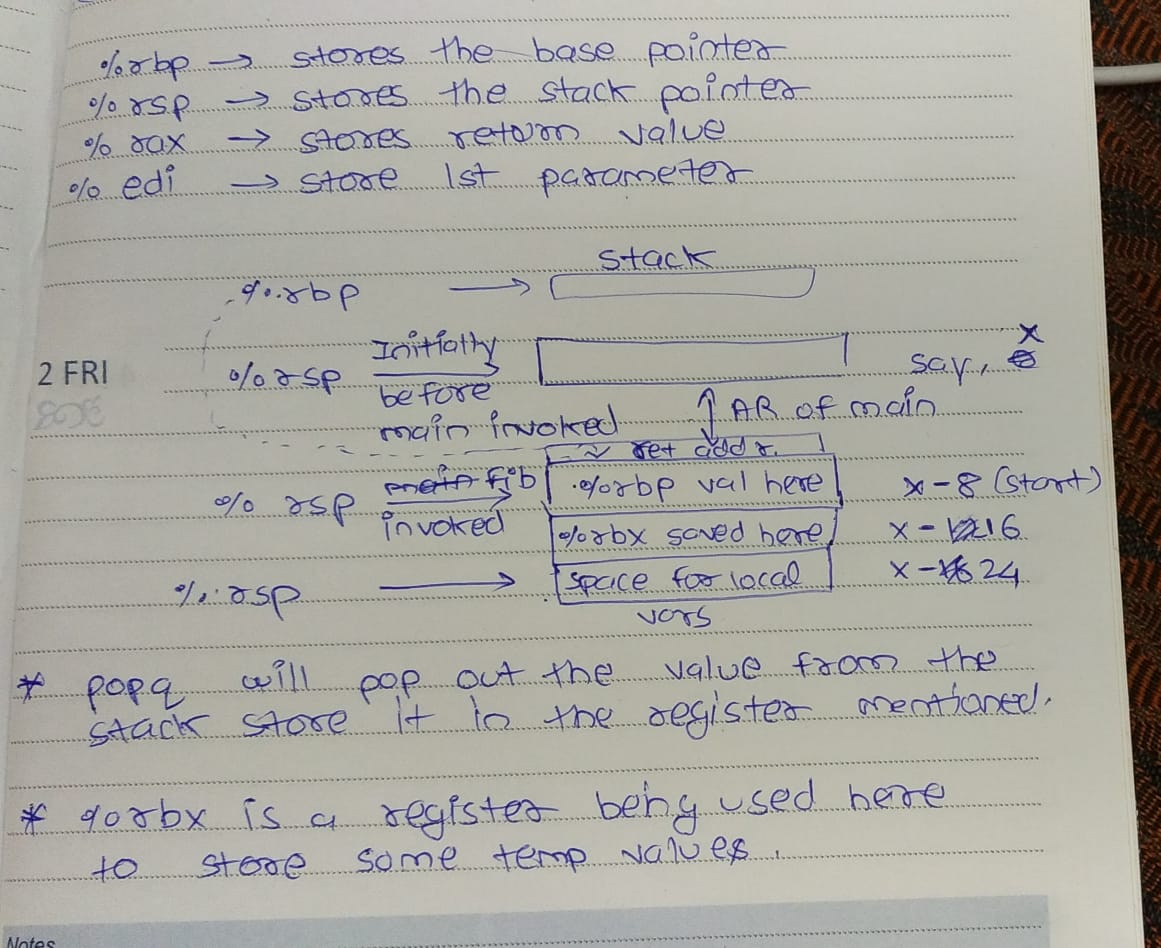 %rbp → stores the base pointer
%rsp → stores the stack pointer
%rax → stores return value
%edi → store 1st parameter
stack
%rbp →
2 FRI
%rsp Initially before main invoked → say, x
AR of main
ret addr.
%rsp main fib invoked → %rbp val here x-8 (start)
%rbx saved here x-16
%rsp → space for local x-24
vars
* popq will pop out the value from the
stack store it in the register mentioned.
* %rbx is a register being used here
to store some temp values.
Notes